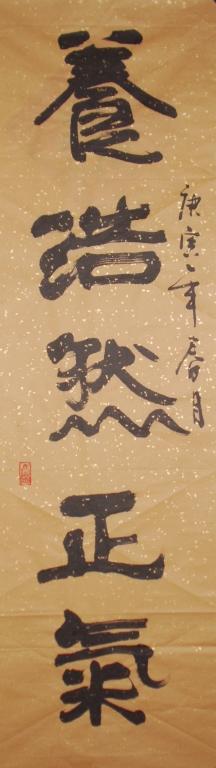 養浩然正氣
庚寅年春月